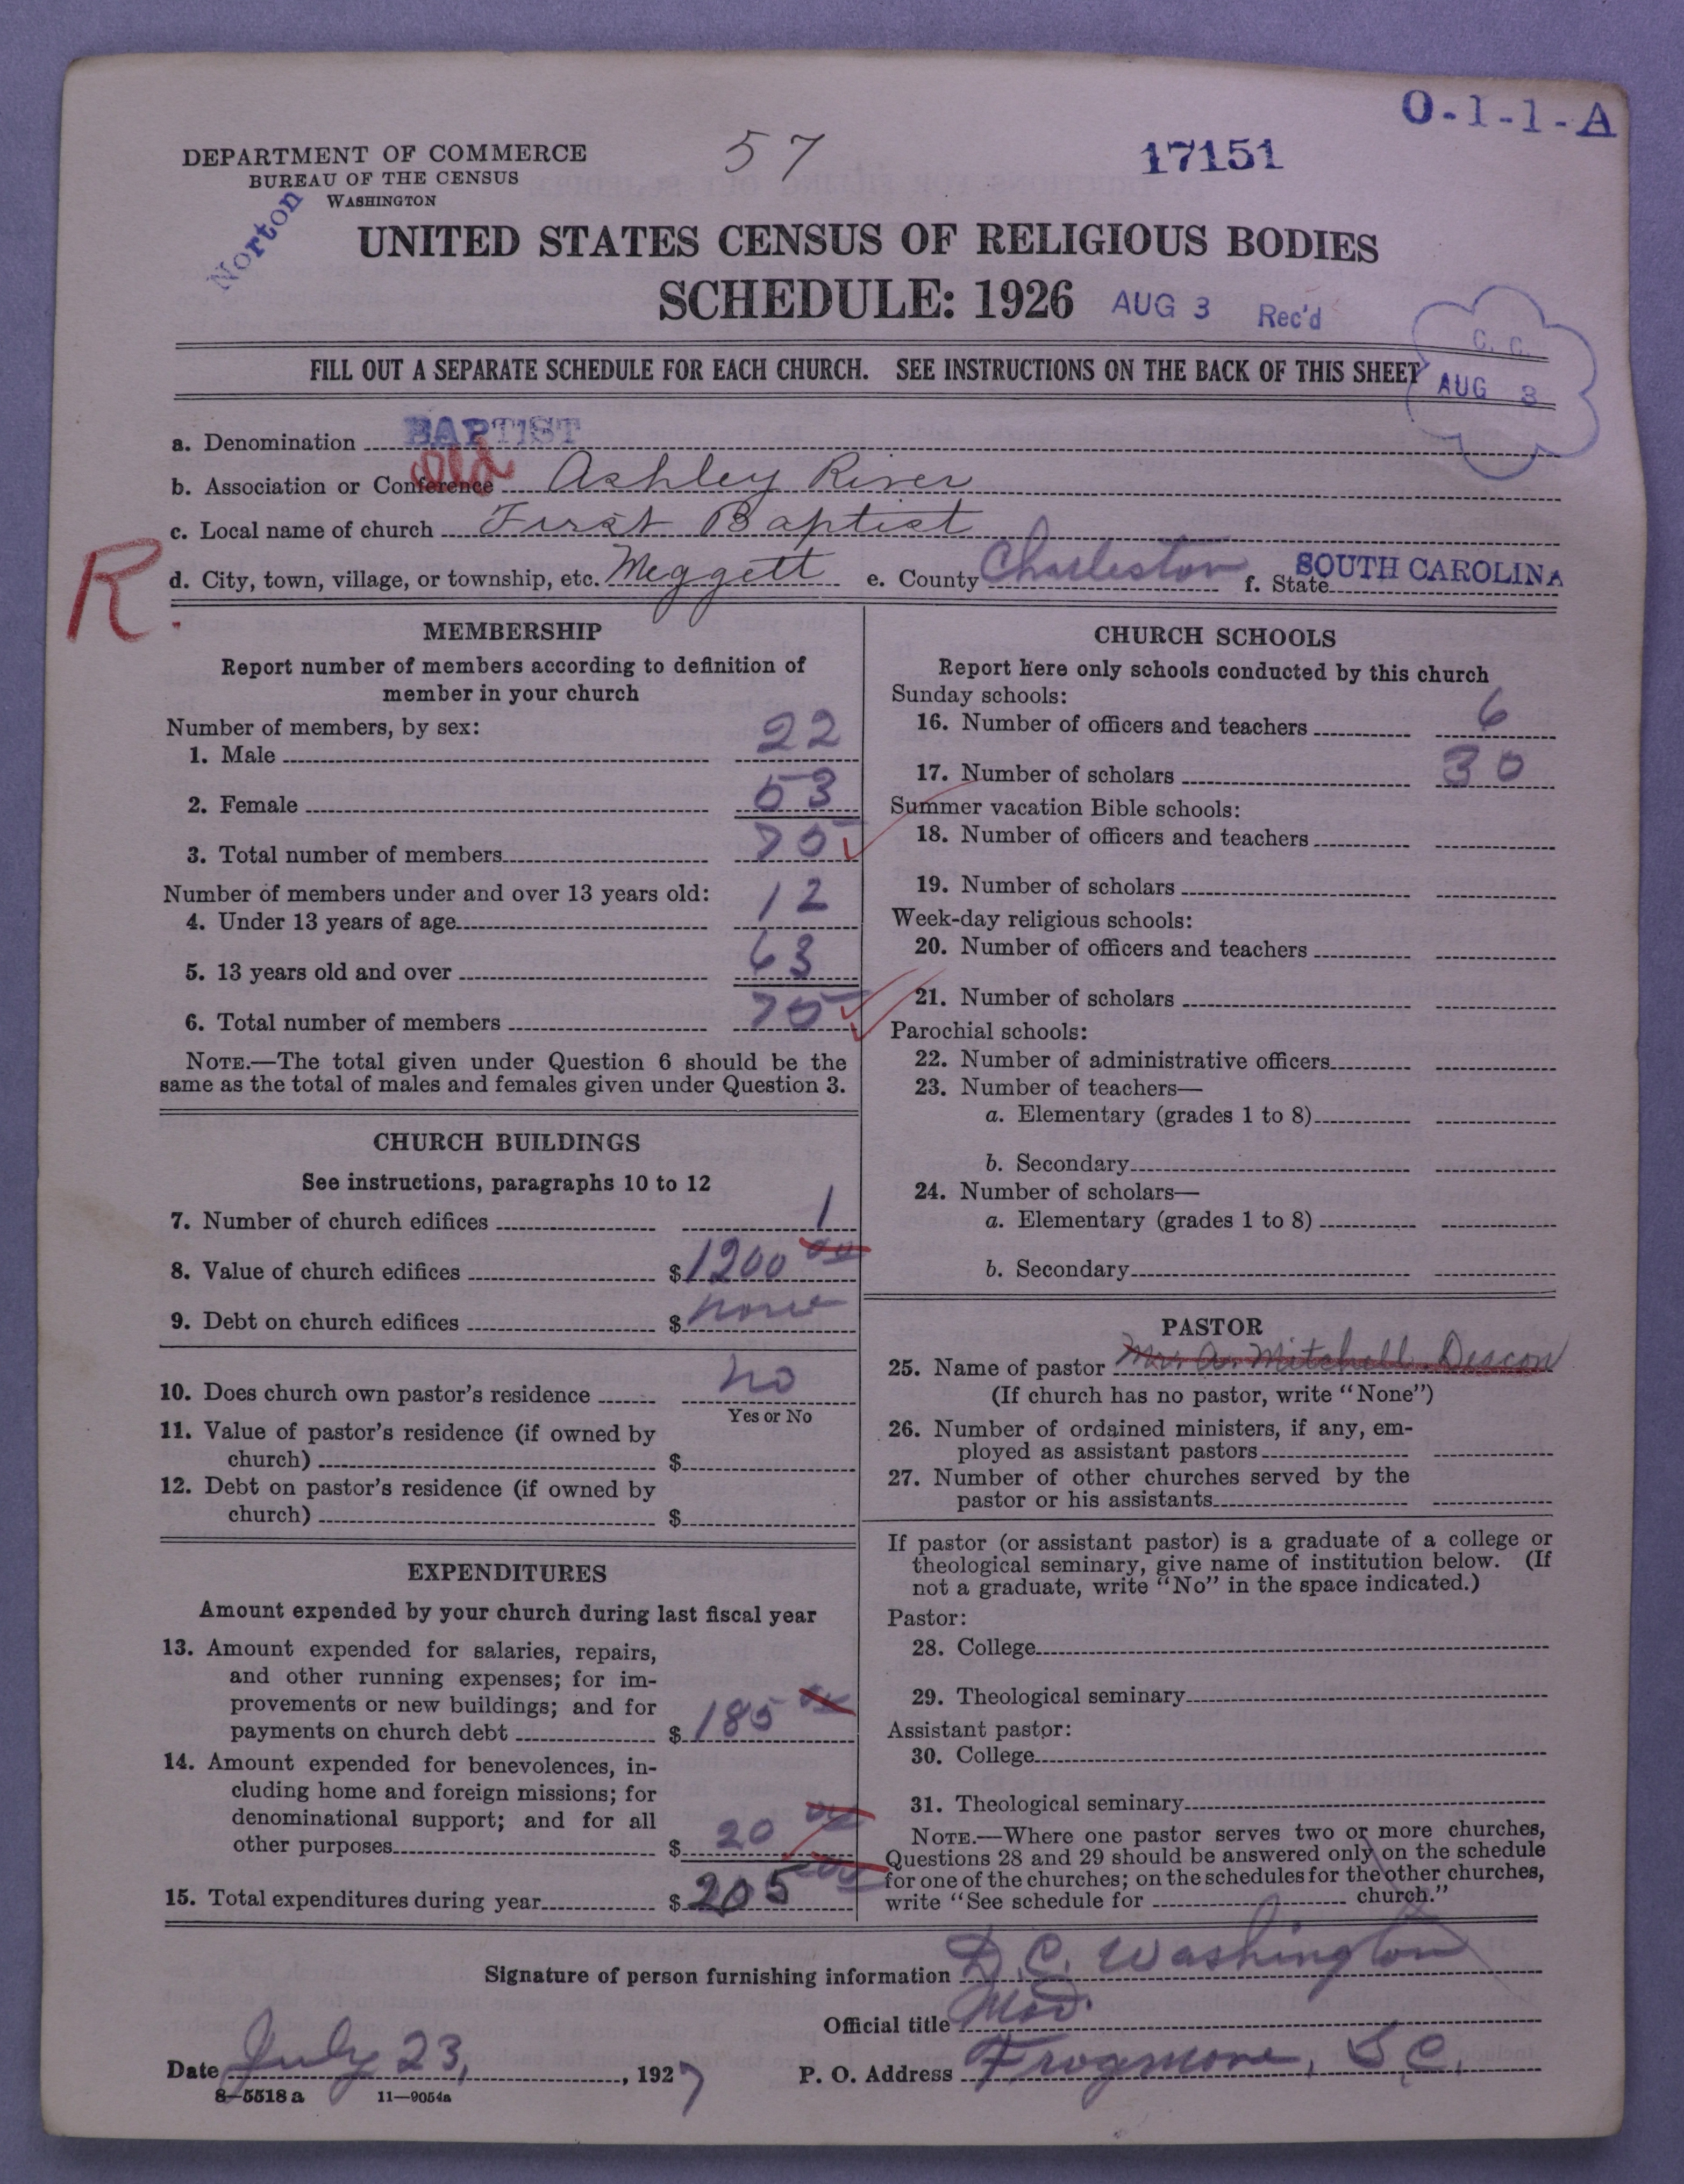 O-1-1-A
57
17151
DEPARTMENT OF COMMERCE
BUREAU OF THE CENSUS
WASHINGTON
Norton
UNITED STATES CENSUS OF RELIGIOUS BODIES
SCHEDULE: 1926 AUG 3 Rec'd
C. C.
AUG 3
FILL OUT A SEPARATE SCHEDULE FOR EACH CHURCH. SEE INSTRUCTIONS ON THE BACK OF THIS SHEET
a. Denomination BAPTIST
b. Association or Conference Old Ashley River
c. Local name of church First Baptist
R.
d. City, town, village, or township, etc. Meggett e. County Charleston f. State SOUTH CAROLINA
MEMBERSHIP
Report number of members according to definition of
member in your church
Number of members, by sex:
1. Male 22
2. Female 53
3. Total number of members 75
Number of members under and over 13 years old:
4. Under 13 years of age 12
5. 13 years old and over 63
6. Total number of members 75
NOTE.—The total given under Question 6 should be the
same as the total of males and females given under Question 3.
CHURCH BUILDINGS
See instructions, paragraphs 10 to 12
7. Number of church edifices 1
8. Value of church edifices $1200 00
9. Debt on church edifices $ none
10. Does church own pastor's residence no
Yes or No
11. Value of pastor's residence (if owned by
church) $
12. Debt on pastor's residence (if owned by
church) $
EXPENDITURES
Amount expended by your church during last fiscal year
13. Amount expended for salaries, repairs,
and other running expenses; for im-
provements or new buildings; and for
payments on church debt $ 185 00
14. Amount expended for benevolences, in-
cluding home and foreign missions; for
denominational support; and for all
other purposes $ 20 00
15. Total expenditures during year $ 205 00
CHURCH SCHOOLS
Report here only schools conducted by this church
Sunday schools:
16. Number of officers and teachers 6
17. Number of scholars 30
Summer vacation Bible schools:
18. Number of officers and teachers
19. Number of scholars
Week-day religious schools:
20. Number of officers and teachers
21. Number of scholars
Parochial schools:
22. Number of administrative officers
23. Number of teachers—
a. Elementary (grades 1 to 8)
b. Secondary
24. Number of scholars—
a. Elementary (grades 1 to 8)
b. Secondary
PASTOR
25. Name of pastor Mr. A. Mitchell. Deacon
(If church has no pastor, write "None")
26. Number of ordained ministers, if any, em-
ployed as assistant pastors
27. Number of other churches served by the
pastor or his assistants
If pastor (or assistant pastor) is a graduate of a college or
theological seminary, give name of institution below. (If
not a graduate, write "No" in the space indicated.)
Pastor:
28. College
29. Theological seminary
Assistant pastor:
30. College
31. Theological seminary
NOTE.—Where one pastor serves two or more churches,
Questions 28 and 29 should be answered only on the schedule
for one of the churches; on the schedules for the other churches,
write "See schedule for church."
Signature of person furnishing information D. C. Washington
Official title Mod.
Date July 23, 1927 P. O. Address Frogmore, S.C.
8—5518 a 11—9054a